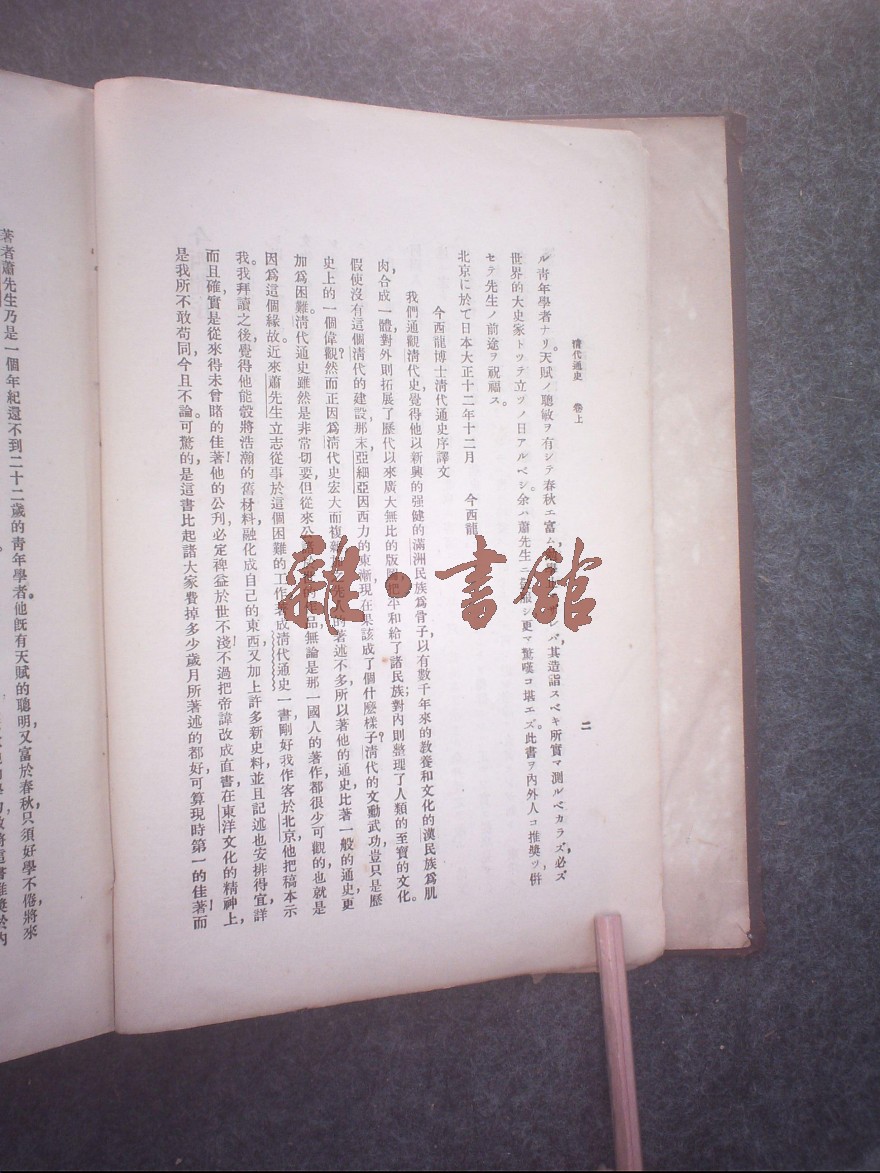 清代通史 卷上
二
ル靑年學者ナリ。天賦ノ聰敏ヲ有シテ春秋ニ富ム,其造詣スベキ所實マ測ルベカラズ,必ズ
世界的大史家トツテ立ツノ日アルベシ。余ハ蕭先生ニシ更マ驚嘆コ堪エズ。此書ヲ內外人コ推奬ツ併
セテ先生ノ前途ヲ祝福ス。
北京に於て日本大正十二年十二月 今西龍
今西龍博士淸代通史序譯文
我們通觀淸代史,覺得他以新興的强健的滿洲民族爲骨子,以有數千年來的敎養和文化的漢民族爲肌
肉,合成一體,對外則拓展了歷代以來廣大無比的版圖,把平和給了諸民族;對內則整理了人類的至寶的文化。
假使沒有這個淸代的建設,那末亞細亞因西力的東漸,現在果該成了個什麽樣子?淸代的文勳武功,豈只是歷
史上的一個偉觀?然而正因爲淸代史宏大而複雜,先人的著述不多,所以著他的通史,比著一般的通史更
加爲困難。淸代通史雖然是非常切要,但從來公的品,無論是那一國人的著作,都很少可觀的,也就是
因爲這個緣故。近來蕭先生立志從事於這個困難的工作,著成淸代通史一書,剛好我作客於北京,他把稿本示
我。我拜讀之後,覺得他能彀將浩瀚的舊材料融化成自己的東西,又加上許多新史料,並且記述也安排得宜,詳
而且確,實是從來得未曾睹的佳著!他的公刋,必定裨益於世不淺!不過把帝諱改成直書,在東洋文化的精神上,
是我所不敢苟同,今且不論。可驚的是這書比起諸大家費掉多少歲月所著述的都好,可算現時第一的佳著!而
著者蕭先生乃是一個年紀還不到二十二歲的靑年學者。他旣有天賦的聰明,又富於春秋,只須好學不倦,將來